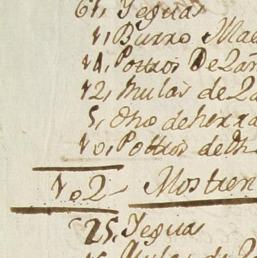 61, Yeguas
1, Burro Mae
14, Potros De 2 añ
12, Mulas de 2 a
5, Oho de herra
10, Potros de
102 - Mostren
25, Yeguas
Mulas de 2